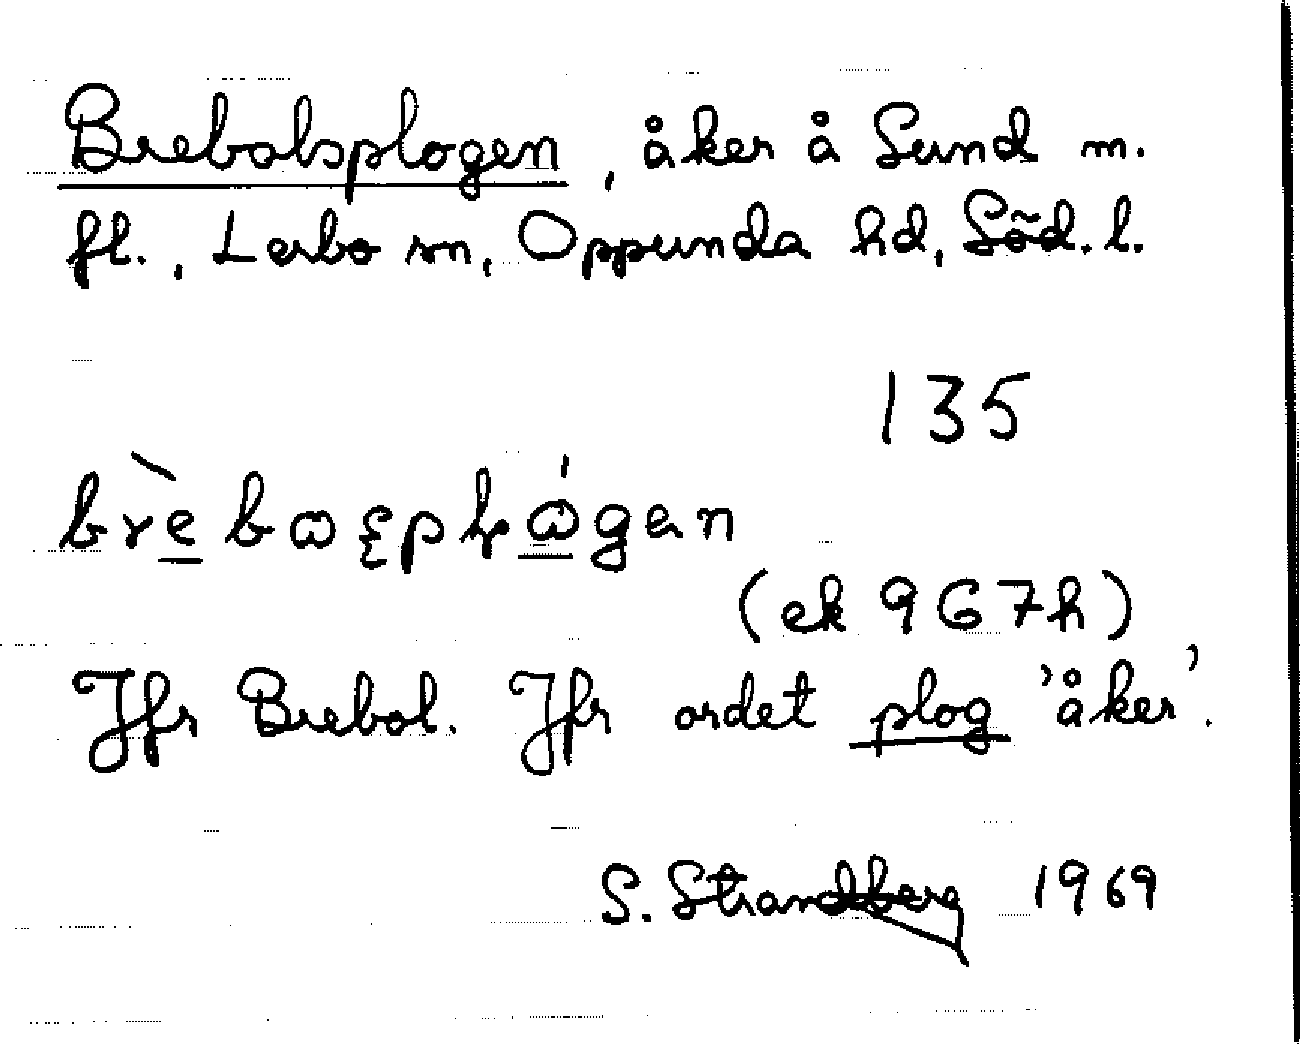 Brebolsplogen, åker å Sund m.
fl., Lerbo sn, Oppunda hd, Söd. l.
135
(ek 967h)
Jfr Brebol. Jfr ordet plog 'åker'.
S. Strandberg 1969